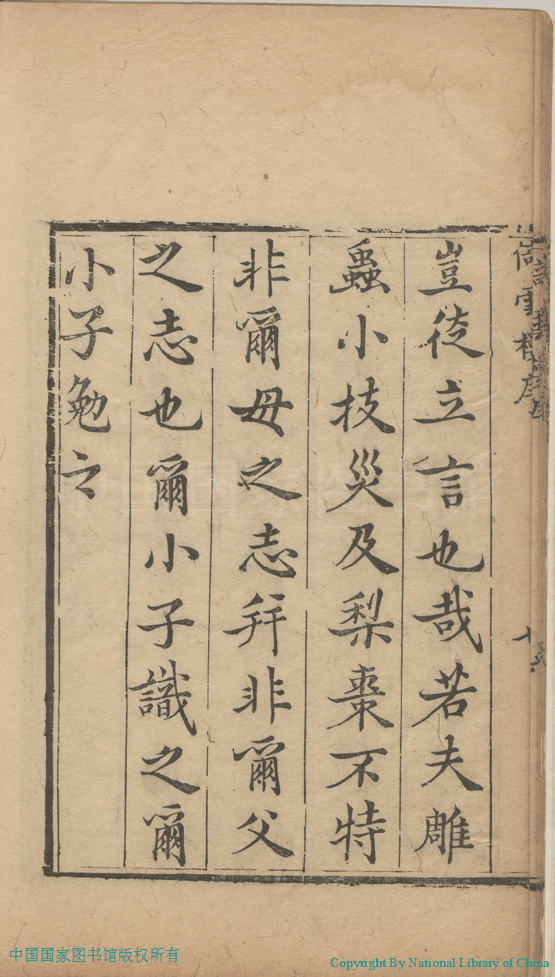 豈徒立言也哉若夫雕
蟲小技災及梨棗不特
非爾母之志并非爾父
之志也爾小子識之爾
小子勉之
中国国家图书馆版权所有
Copyright By National Library of China